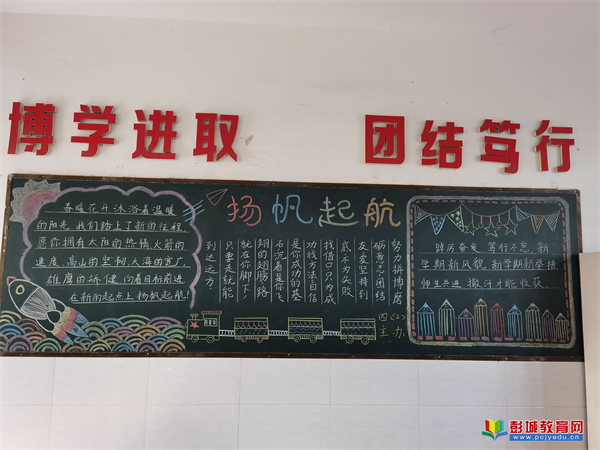 博学进取 团结笃行
扬帆起航
春暖花开沐浴着温暖
的阳光,我们踏上了新的征程,
愿你拥有太阳的热情火箭的
速度,高山的坚韧大海的宽广,
雄鹰的矫健,向着目标前进
在新的起点上扬帆起航!
努力拼搏磨
砺意志团结
友爱坚持到
底不为失败
找借口只为成
功找方法自信
是你成功的基
石沉着是你飞
翔的翅膀路
就在你脚下!
只要走就能
到达远方.
四(2)
主办
踔厉奋发,笃行不怠,新
学期新风貌,新学期新举措
师生共进,撒汗才能收获.
彭城教育网
www.pcjyedu.cn